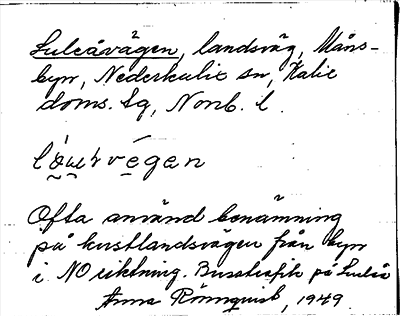 Luleåvägen, landsväg, Måns-
byn, Nederkalix sn, Kalix
doms. tg, Norrb. l.
Ofta använd benämning
på kustlandsvägen från byn
i NO riktning. Busstrafik på Luleå
Anna Rönnquist, 1949